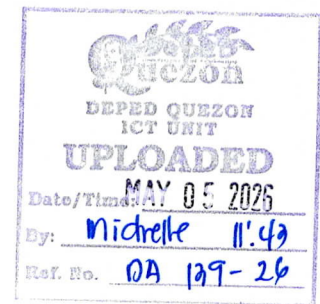 Quezon
DEPED QUEZON
ICT UNIT
UPLOADED
Date/Time: MAY 05 2026
By: Michelle 11:43
Ref. No. DA 139-26